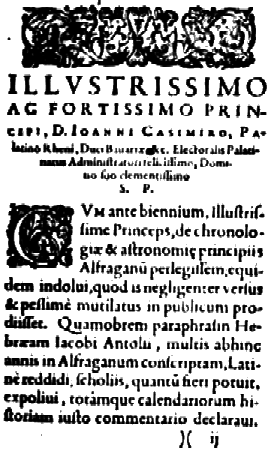 ILLVSTRISSIMO
AC FORTISSIMO PRIN-
CIPI, D. IOANNI CASIMIRO, PA-
latino Rheni, Duci Bauariæ &c. Electoralis Palati-
natus Administratori felicissimo, Domi-
no suo clementissimo
S. P.
CVM ante biennium, Illustris-
sime Princeps, de chronolo-
giæ & astronomiæ principiis
Alfraganũ perlegissem, equi-
dem indolui, quòd is negligenter versus
& pessimè mutilatus in publicum pro-
diisset. Quamobrem paraphrasin He-
bræam Iacobi Antolii, multis abhinc
annis in Alfraganum conscriptam, Lati-
nè reddidi, scholiis, quantũ fieri potuit,
expoliui, totámque calendariorum hi-
storiam iusto commentario declaraui.
)( ij